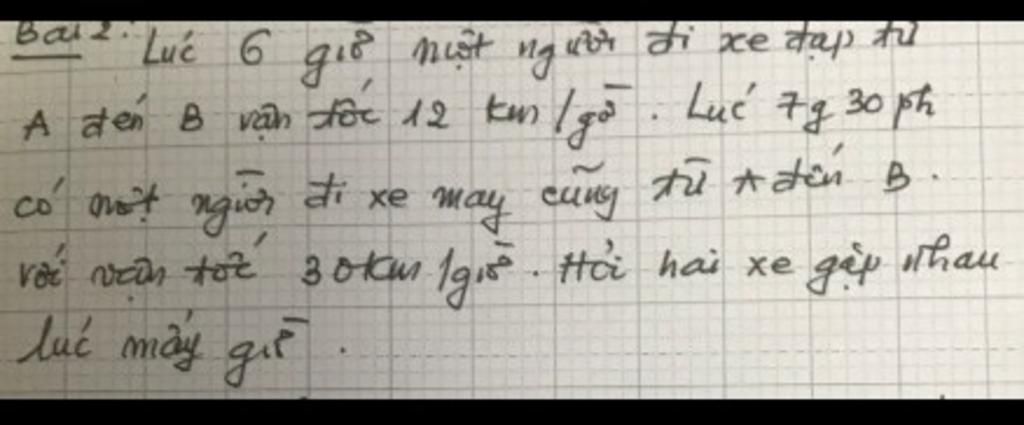 Bài 2: Lúc 6 giờ một người đi xe đạp từ
A đến B vận tốc 12 km/giờ. Lúc 7g 30 ph
có một người đi xe máy cũng từ A đến B.
với vận tốc 30km/giờ. Hỏi hai xe gặp nhau
lúc mấy giờ.